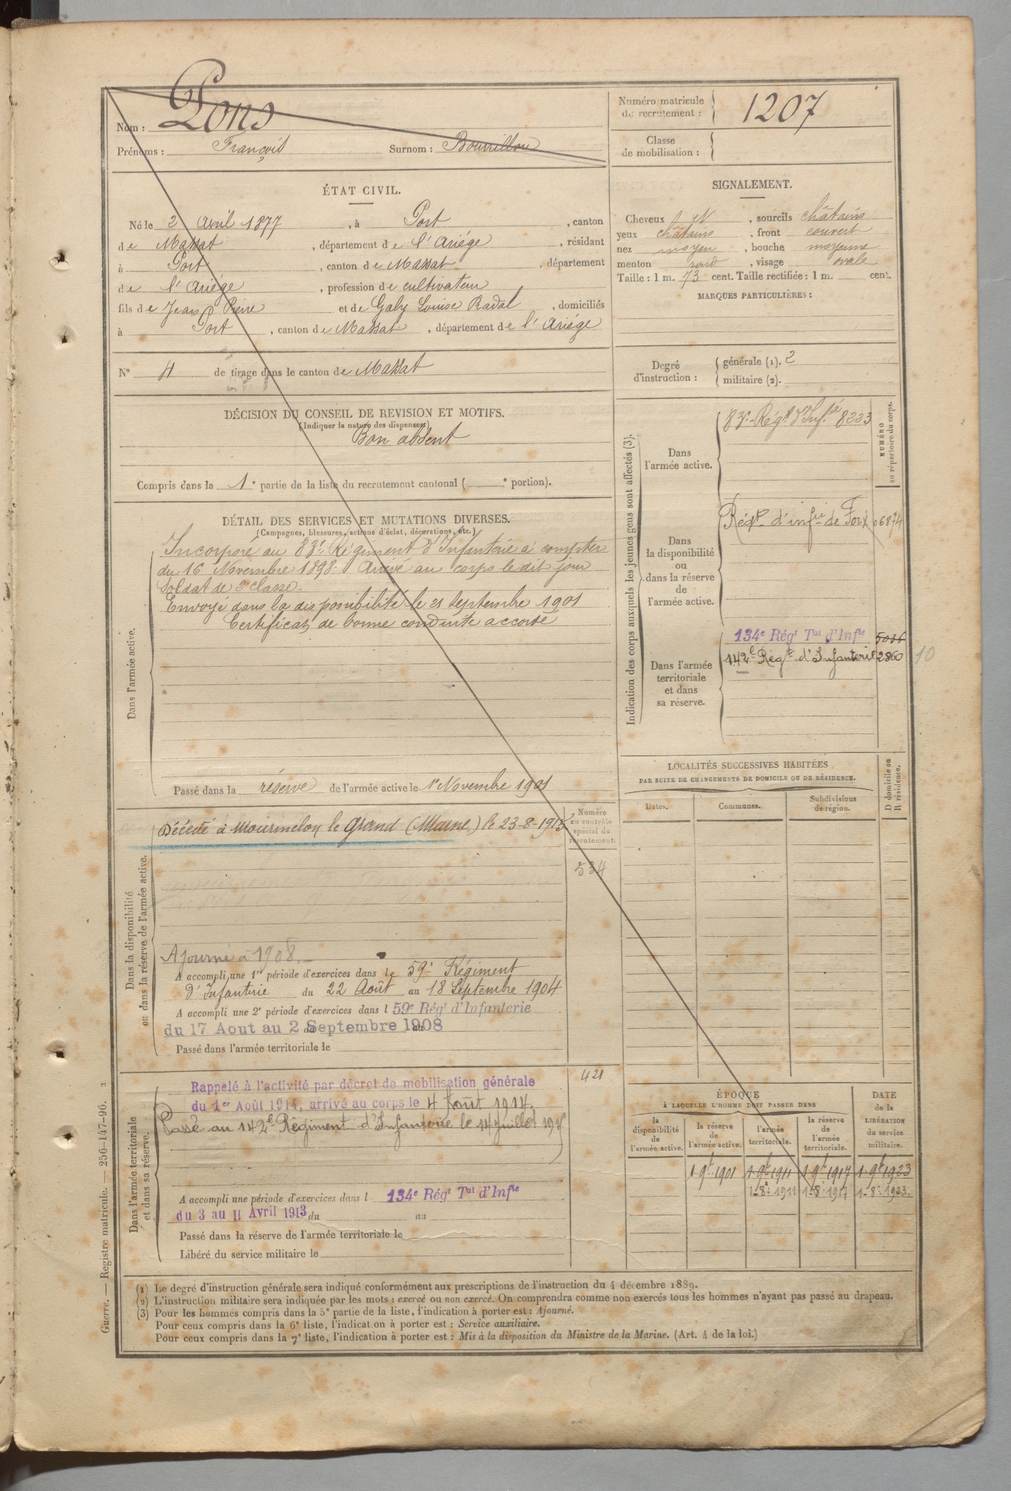 Nom : Pons
Prénoms : François Surnom : Bourrillou
Numéro matricule de recrutement : 1207
Classe de mobilisation :
ÉTAT CIVIL.
Né le 2 Avril 1877, à Port, canton
de Massat, département de l'Ariége, résidant
à Port, canton de Massat, département
de l'Ariége, profession de cultivateur
fils de Jean Pierre et de Galy Louise Radal, domiciliés
à Port, canton de Massat, département de l'Ariége
N° 4 de tirage dans le canton de Massat
DÉCISION DU CONSEIL DE REVISION ET MOTIFS.
(Indiquer la nature des dispenses)
Bon absent
Compris dans la 1e partie de la liste du recrutement cantonal ( e portion).
SIGNALEMENT.
Cheveux , sourcils châtains
yeux châtains, front couvert
nez moyen, bouche moyenne
menton rond, visage ovale
Taille : 1 m. 73 cent. Taille rectifiée : 1 m. cent.
MARQUES PARTICULIÈRES :
Degré d'instruction :
générale (1). 2
militaire (2).
DÉTAIL DES SERVICES ET MUTATIONS DIVERSES.
(Campagnes, blessures, actions d'éclat, décorations, etc.)
Dans l'armée active.
Incorporé au 83e Régiment d'Infanterie à compter
du 16 Novembre 1898. Arrivé au corps le dit jour
Soldat de 2e classe.
Envoyé dans la disponibilité le 21 Septembre 1901
Certificat de bonne conduite accordé
Passé dans la réserve de l'armée active le 1er Novembre 1901
Indication des corps auxquels les jeunes gens sont affectés (3).
NUMÉRO au répertoire du corps.
Dans l'armée active.
83e Régt d'Infie 8223
Dans la disponibilité ou dans la réserve de l'armée active.
Régt d'infie de Foix 06874
Dans l'armée territoriale et dans sa réserve.
134e Régt Tal d'Infie
142e Régt d'Infanterie 2860
10
LOCALITÉS SUCCESSIVES HABITÉES
PAR SUITE DE CHANGEMENTS DE DOMICILE OU DE RÉSIDENCE.
Dates. Communes. Subdivisions de région. D domicile ou R résidence.
Dans la disponibilité ou dans la réserve de l'armée active.
Numéro au contrôle spécial du recrutement.
Décédé à Mourmelon le Grand (Marne) le 23-8-1915
534
Ajourné à 1908.
A accompli une 1re période d'exercices dans le 59e Régiment
d'Infanterie du 22 Août au 18 Septembre 1904
A accompli une 2e période d'exercices dans l 59e Régt d'Infanterie
du 17 Aout au 2 Septembre 1908
Passé dans l'armée territoriale le
Dans l'armée territoriale et dans sa réserve.
421
Rappelé à l'activité par décret de mobilisation générale
du 1er Août 1914, arrivé au corps le 4 Août 1914.
Passé au 142e Régiment d'Infanterie le 14 juillet 1915
A accompli une période d'exercices dans l 134e Régt Tal d'Infie
du 3 au 11 Avril 1913 du au
Passé dans la réserve de l'armée territoriale le
Libéré du service militaire le
ÉPOQUE
À LAQUELLE L'HOMME DOIT PASSER DANS
la disponibilité de l'armée active. la réserve de l'armée active. l'armée territoriale. la réserve de l'armée territoriale.
DATE de la LIBÉRATION du service militaire.
1 9bre 1901 1 9bre 1911 1 9bre 1917 1 9bre 1923
1-8e 1911 1-8e 1917 1-8e 1923.
(1) Le degré d'instruction générale sera indiqué conformément aux prescriptions de l'instruction du 4 décembre 1889.
(2) L'instruction militaire sera indiquée par les mots : exercé ou non exercé. On comprendra comme non exercés tous les hommes n'ayant pas passé au drapeau.
(3) Pour les hommes compris dans la 5e partie de la liste, l'indication à porter est : Ajourné.
Pour ceux compris dans la 6e liste, l'indication à porter est : Service auxiliaire.
Pour ceux compris dans la 7e liste, l'indication à porter est : Mis à la disposition du Ministre de la Marine. (Art. 4 de la loi.)
Guerre. — Registre matricule. — 256-147-96. 2